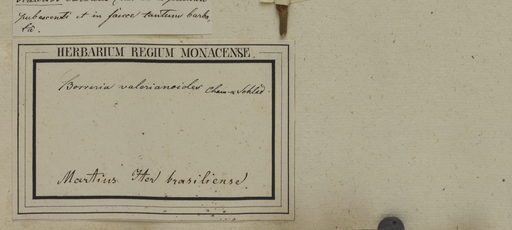 pubescenti et in fauce tantum barba
tâ.
HERBARIUM REGIUM MONACENSE.
Borreria valerianoides Cham. & Schltd.
Martius Iter brasiliense.